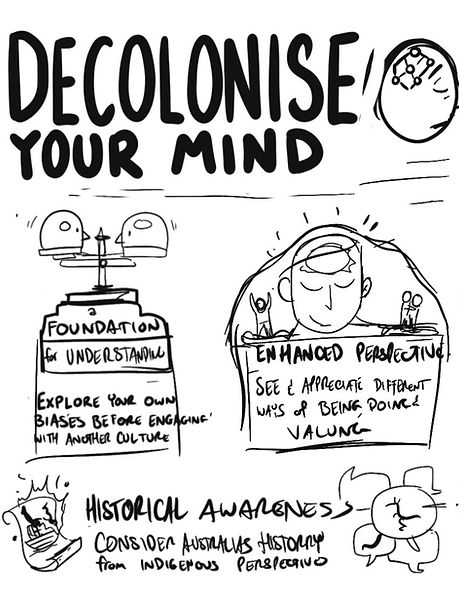 DECOLONISE
YOUR MIND
a
FOUNDATION
for UNDERSTANDING
EXPLORE YOUR OWN
BIASES BEFORE ENGAGING
WITH ANOTHER CULTURE
ENHANCED PERSPECTIVE
SEE & APPRECIATE DIFFERENT
WAYS of BEING, DOING &
VALUING
HISTORICAL AWARENESS
CONSIDER AUSTRALIAS HISTORY
from INDIGENOUS PERSPECTIVE